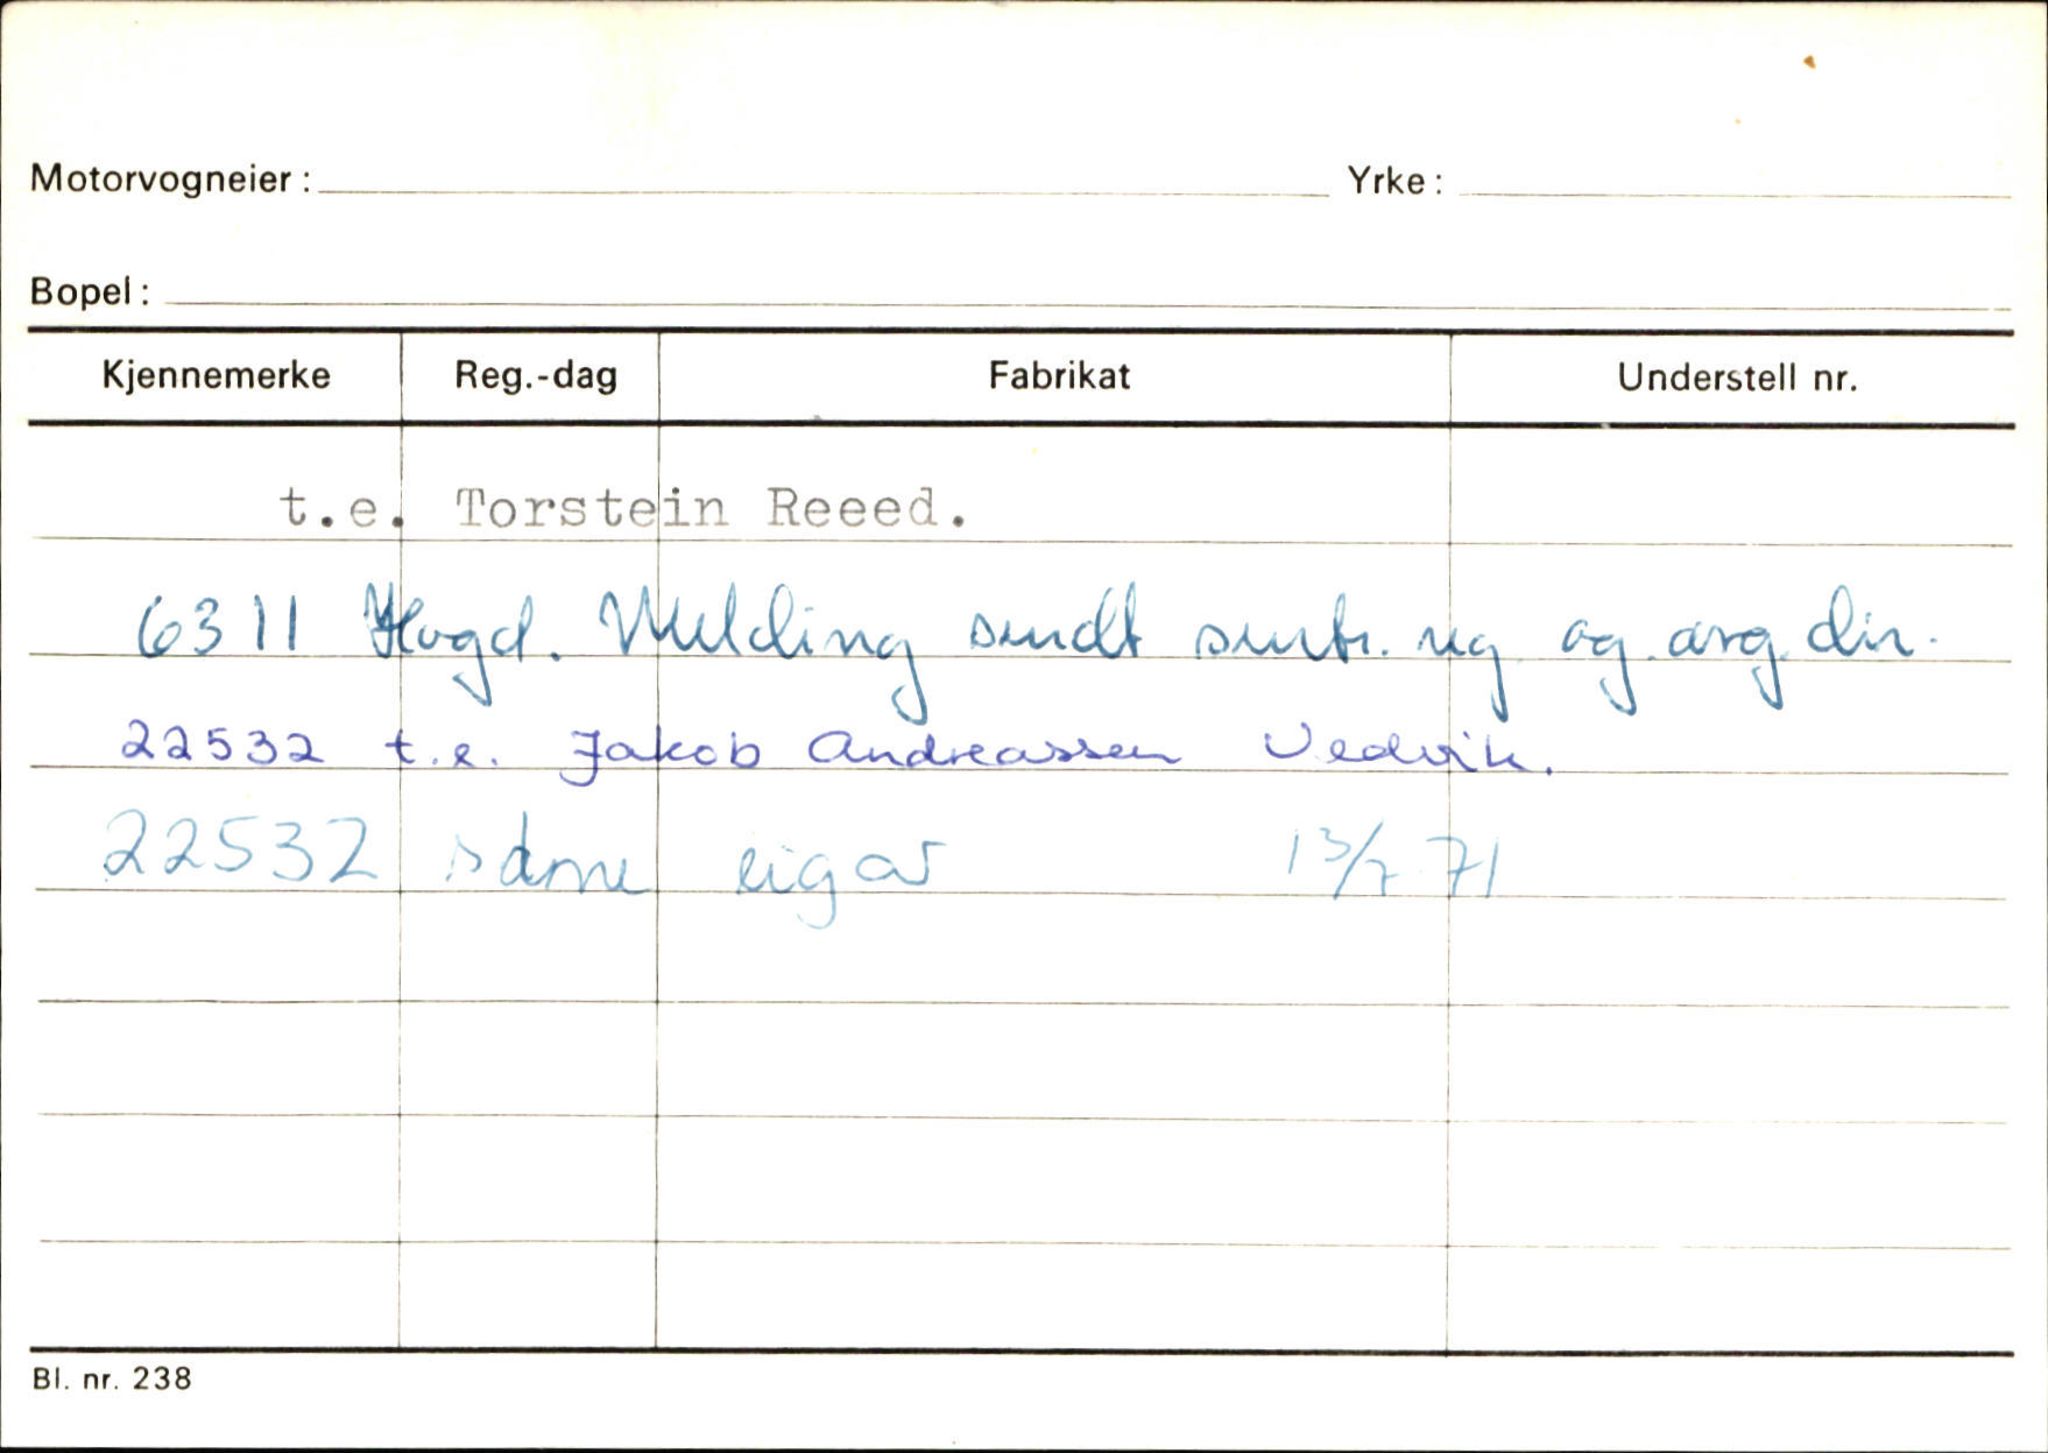 Motorvogneier: Yrke:
Bopel:
Kjennemerke Reg.-dag Fabrikat Understell nr.
t.e. Torstein Reeed.
6311 Hogd. Melding sendt sentr. reg og avg. dir.
22532 t.e. Jakob Andreassen Vedvik.
22532 same eigar 13/7 71
Bl. nr. 238